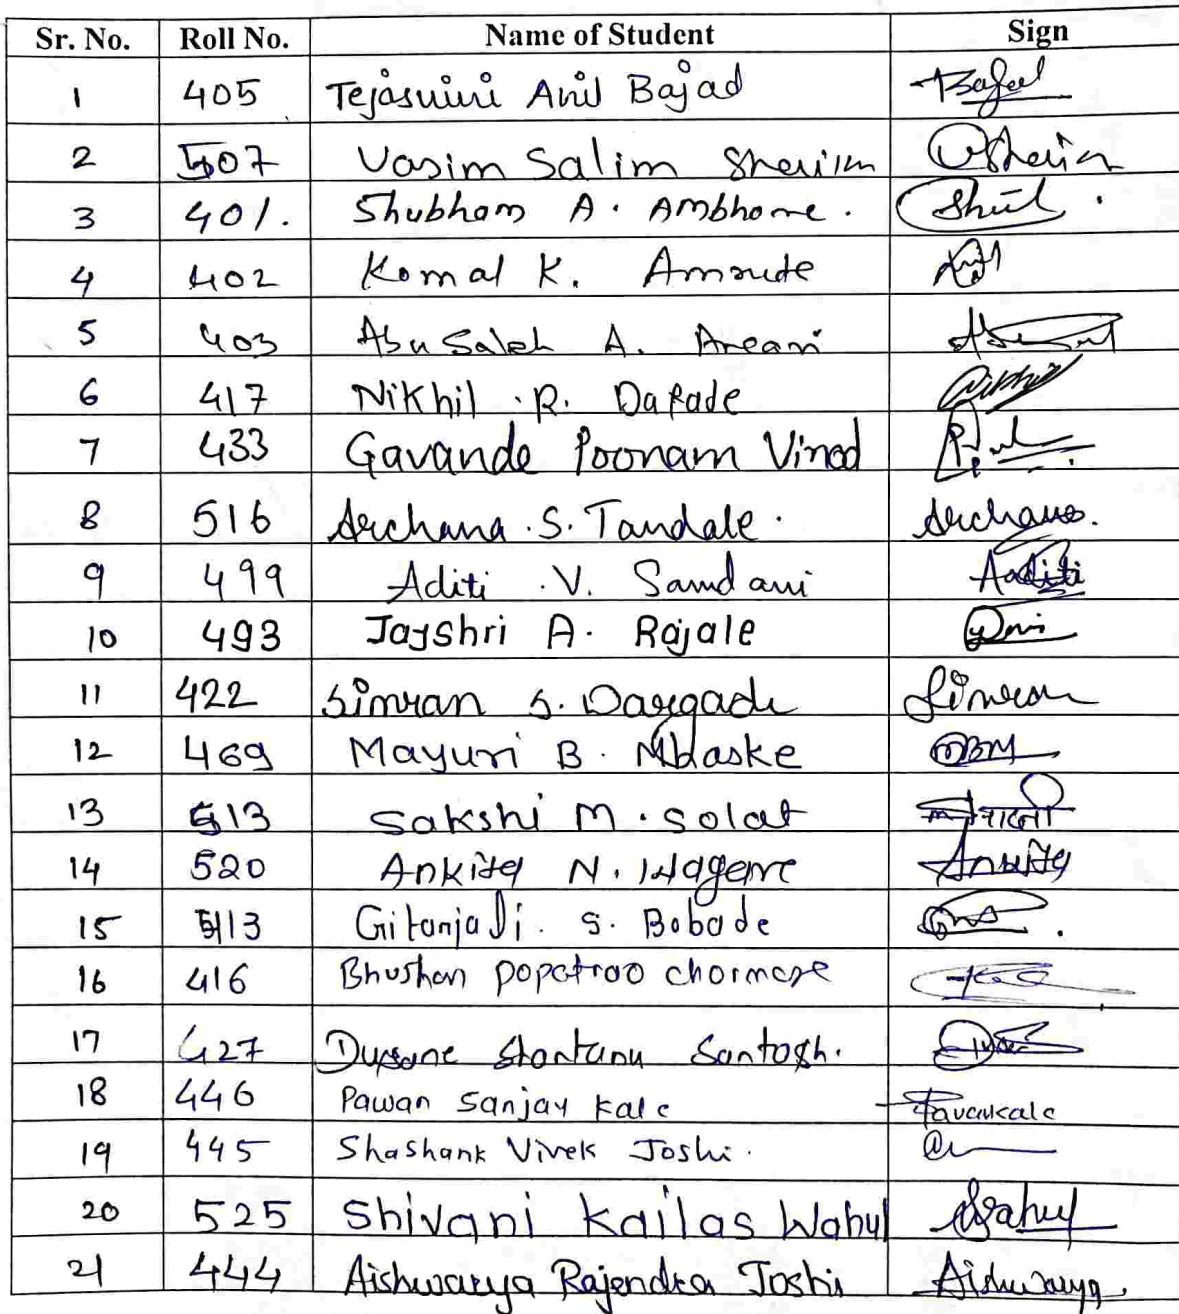 Sr. No. Roll No. Name of Student Sign
1 405 Tejaswini Anil Bajad Bajad
2 507 Vasim Salim Sheikh
3 401. Shubham A. Ambhore.
4 402 Komal K. Amrute
5 403 Abu Saleh A.
6 417 Nikhil .R. Dafade Nikhil
7 433 Gavande Poonam Vinod
8 516 Archana .S. Tandale. Archana.
9 499 Aditi .V. Samdani Aaditi
10 493 Jayshri A. Rajale
11 422 Simran S. Dargade Simran
12 469 Mayuri B. Mhaske MBM
13 513 Sakshi M. Solat
14 520 Ankita N. Wagere Ankita
15 Gitanjali. S. Bobade
16 416 Bhushan Popatrao Chormare
17 427 Dusane Shantanu Santosh.
18 446 Pawan Sanjay Kale Pavankale
19 445 Shashank Vivek Joshi.
20 525 Shivani Kailas Wahul Wahul
21 444 Aishwarya Rajendra Joshi Aishwarya.